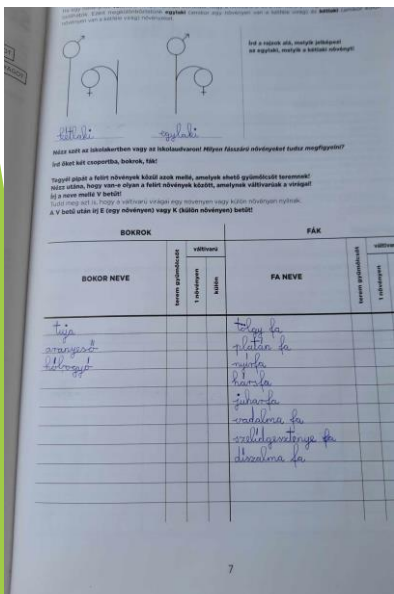 kétlaki egylaki
Írd a rajzok alá, melyik jelképezi
az egylaki, melyik a kétlaki növényt!
Nézz szét az iskolakertben vagy az iskolaudvaron! Milyen fásszárú növényeket tudsz megfigyelni?
Írd őket két csoportba, bokrok, fák!
Tegyél pipát a felírt növények közül azok mellé, amelyek ehető gyümölcsöt teremnek!
Nézz utána, hogy van-e olyan a felírt növények között, amelynek váltivarúak a virágai!
Írj a neve mellé V betűt!
Tudd meg azt is, hogy a váltivarú virágai egy növényen vagy külön növényen nyílnak.
A V betű után írj E (egy növényen) vagy K (külön növényen) betűt!
BOKROK FÁK
BOKOR NEVE terem gyümölcsöt váltivarú 1 növényen külön FA NEVE terem gyümölcsöt 1 növényen
tuja tölgy fa
aranyeső platán fa
hóbogyó nyírfa
hársfa
juharfa
vadalma fa
szelídgesztenye fa
díszalma fa
7